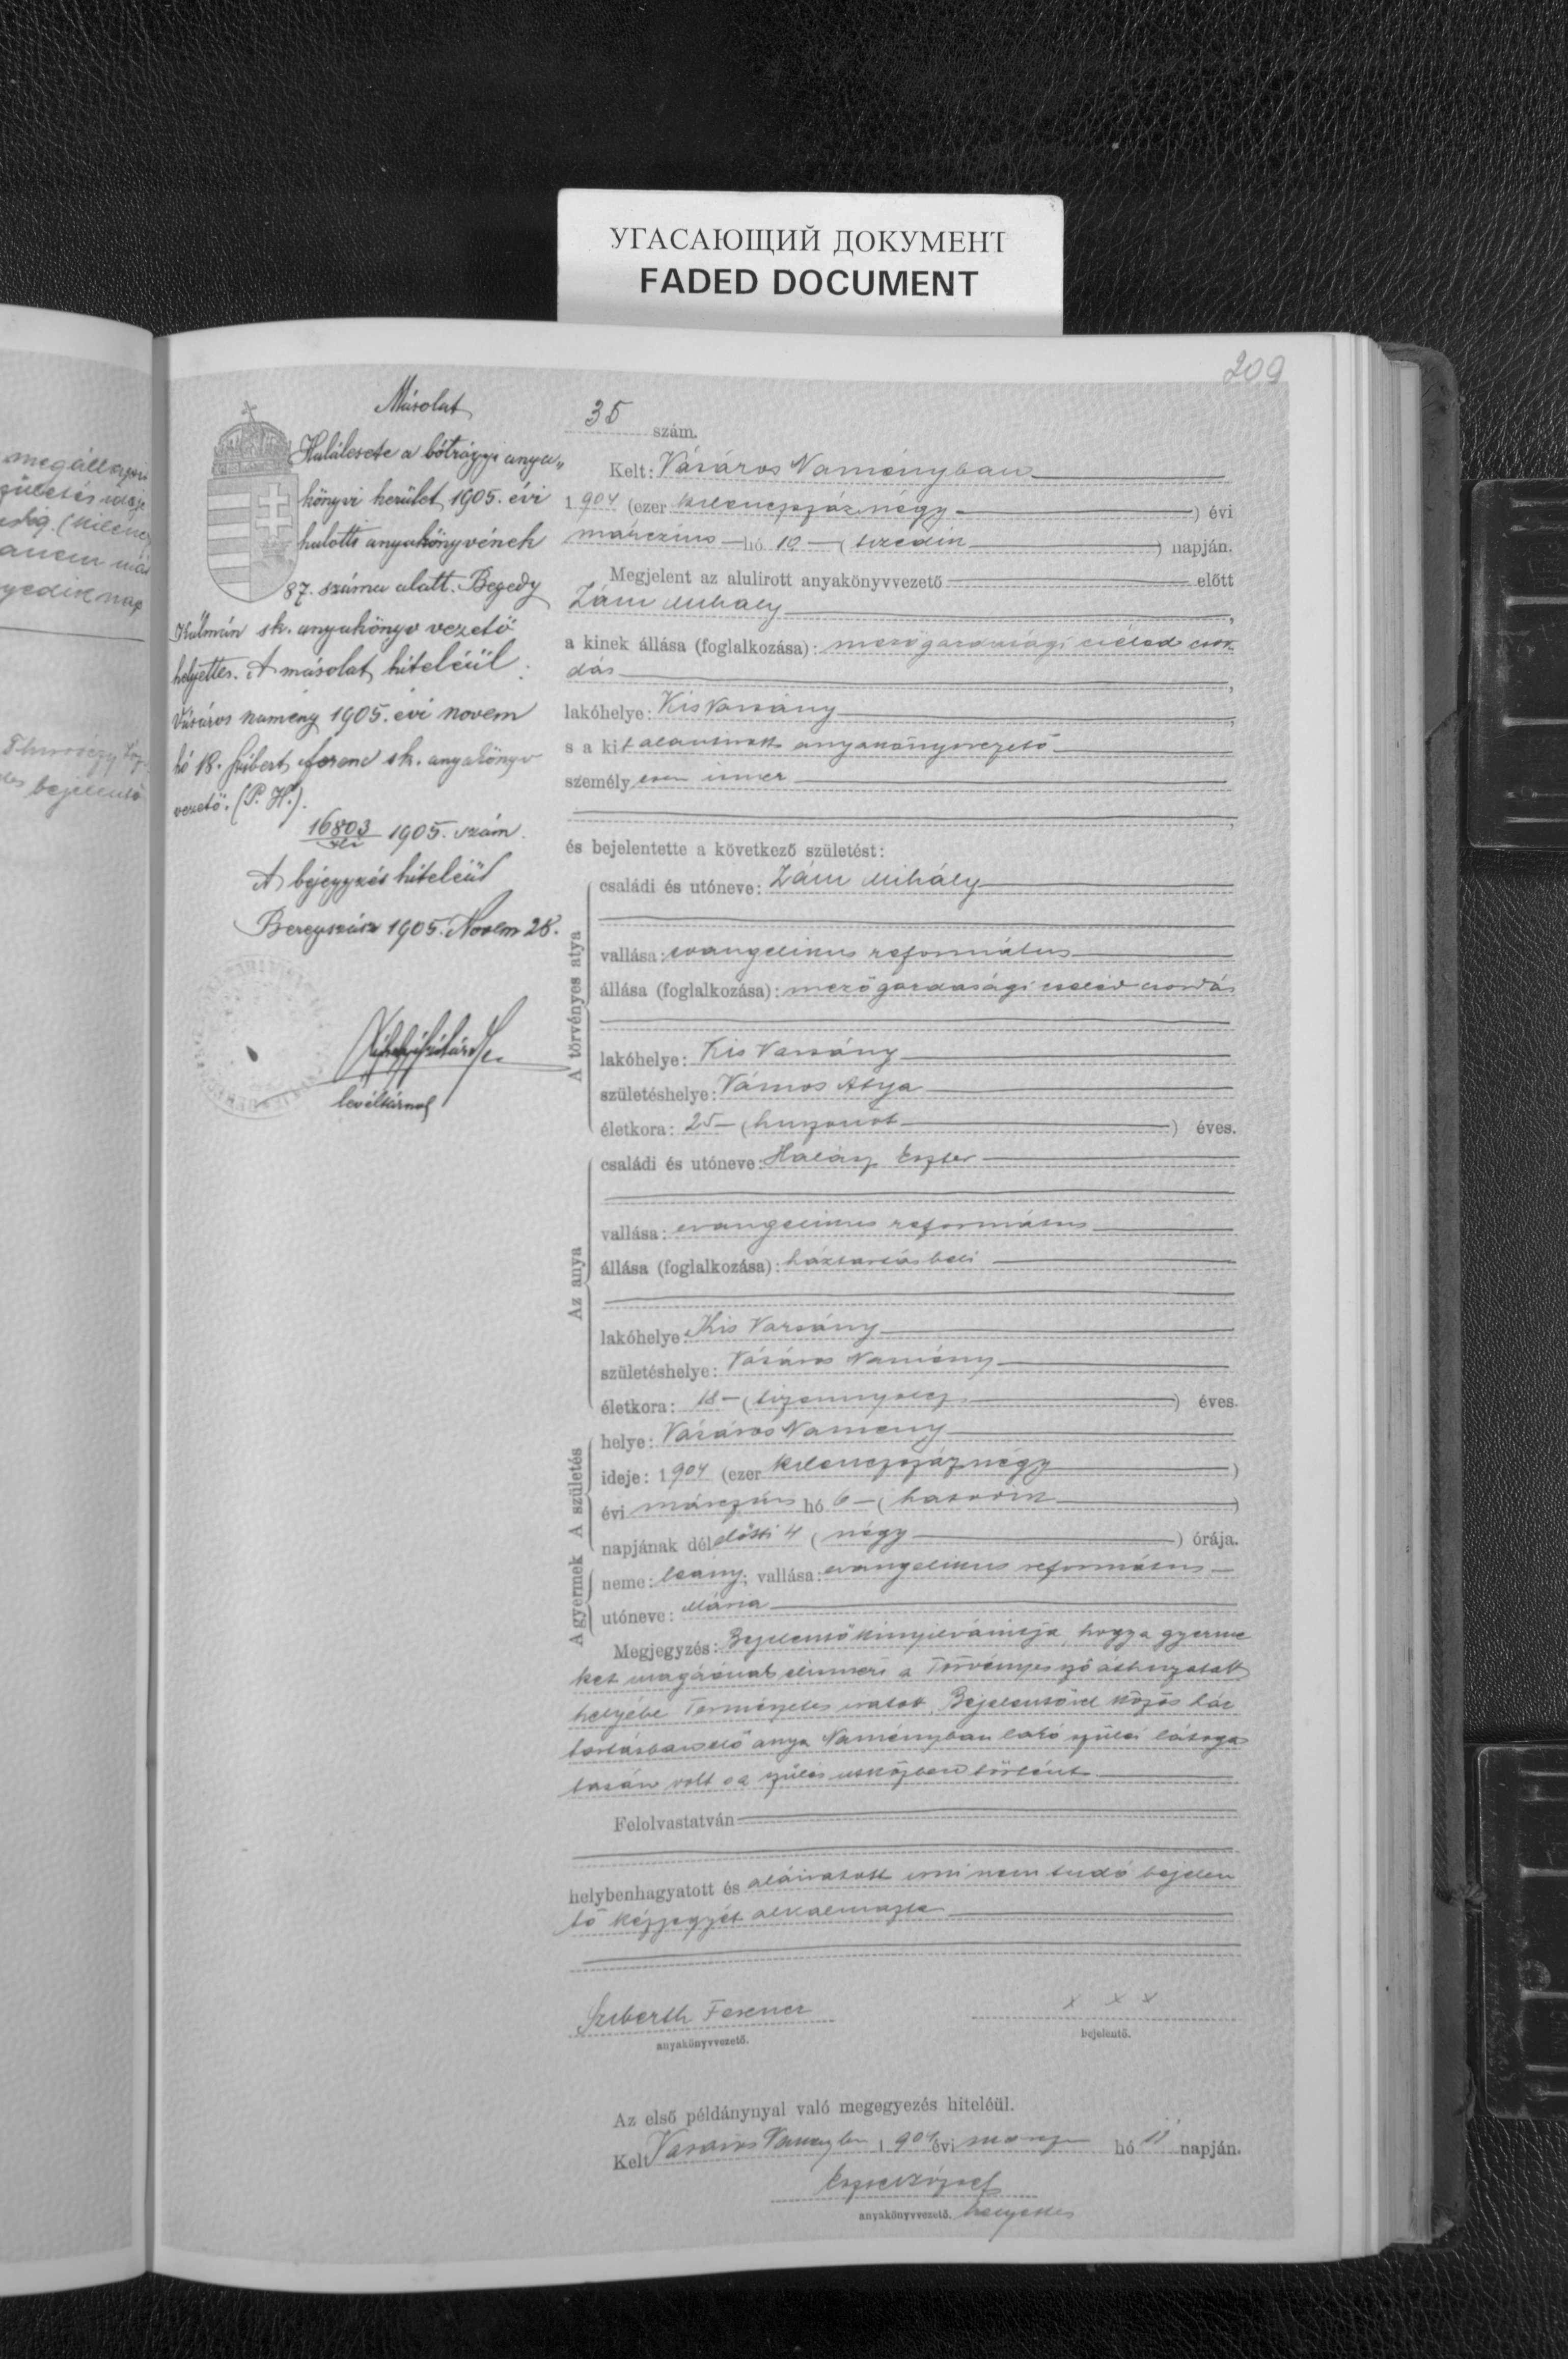 УГАСАЮЩИЙ ДОКУМЕНТ
FADED DOCUMENT
209
Másolat
Halálesete a bótrágyi anya„
könyvi kerület 1905. évi
halotti anyakönyvének
87. száma alatt. Begedy
Kálmán sk. anyakönyv vezető
helyettes. A másolat hiteléül
Vásáros namény 1905. évi novem
hó 18. Szibert Ferenc sk. anyakönyv
vezető. (P. H.).
16803 1905. szám.
A bejegyzés hiteléül
Beregszász 1905. Novem 28.
levéltárnok
35 szám.
Kelt: Vásáros Naményban
1904 (ezer kilenczszáznégy ) évi
márczius hó 10 ( tizedik ) napján.
Megjelent az alulirott anyakönyvvezető előtt
Zám Mihály
a kinek állása (foglalkozása): mezőgazdasági cseléd csor
dás
lakóhelye: Kis Varsány
s a kit alantirott anyakönyvvezető
személyesen ismer
és bejelentette a következő születést:
A törvényes atya
családi és utóneve: Zám Mihály
vallása: evangelikus református
állása (foglalkozása): mezőgazdasági cseléd csordás
lakóhelye: Kis Varsány
születéshelye: Vámos Atya
életkora: 25 (huszonöt ) éves.
Az anya
családi és utóneve: Halász Eszter
vallása: evangelikus református
állása (foglalkozása): háztartásbeli
lakóhelye: Kis Varsány
születéshelye: Vásáros Namény
életkora: 18 (tizennyolcz ) éves.
A születés
helye: Vásáros Namény
ideje: 1904 (ezer kilenczszáznégy )
évi márczius hó 6 ( hatodik )
napjának délelőtti 4 ( négy ) órája.
A gyermek
neme: leany; vallása: evangelikus református
utóneve: Mária
Megjegyzés: Bejelentő kinyilvánitja, hogy a gyerme
ket magáénak elismeri a Törvényes szó áthuzatott
helyébe Természetes iratott. Bejelentővel közös ház
tartásban élő anya Naményban lakó szülei látoga
tásán volt s a szülés utközben történt.
Felolvastatván
helybenhagyatott és aláiratott irni nem tudó bejelen
tő kézjegyét alkalmazta
Sziberth Ferencz
anyakönyvvezető.
x x x
bejelentő.
Az első példánynyal való megegyezés hiteléül.
Kelt Vásáros Naményban 1904 évi márcz hó 11 napján.
anyakönyvvezető. helyettes